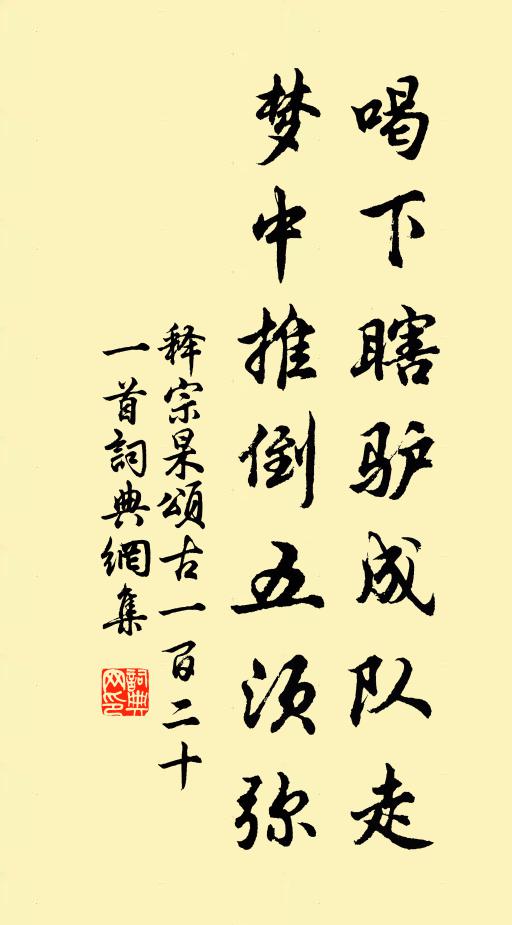 喝下瞎驴成队走
梦中推倒五须弥
释宗杲颂古一百二十
一首词典網集
詞典
网印